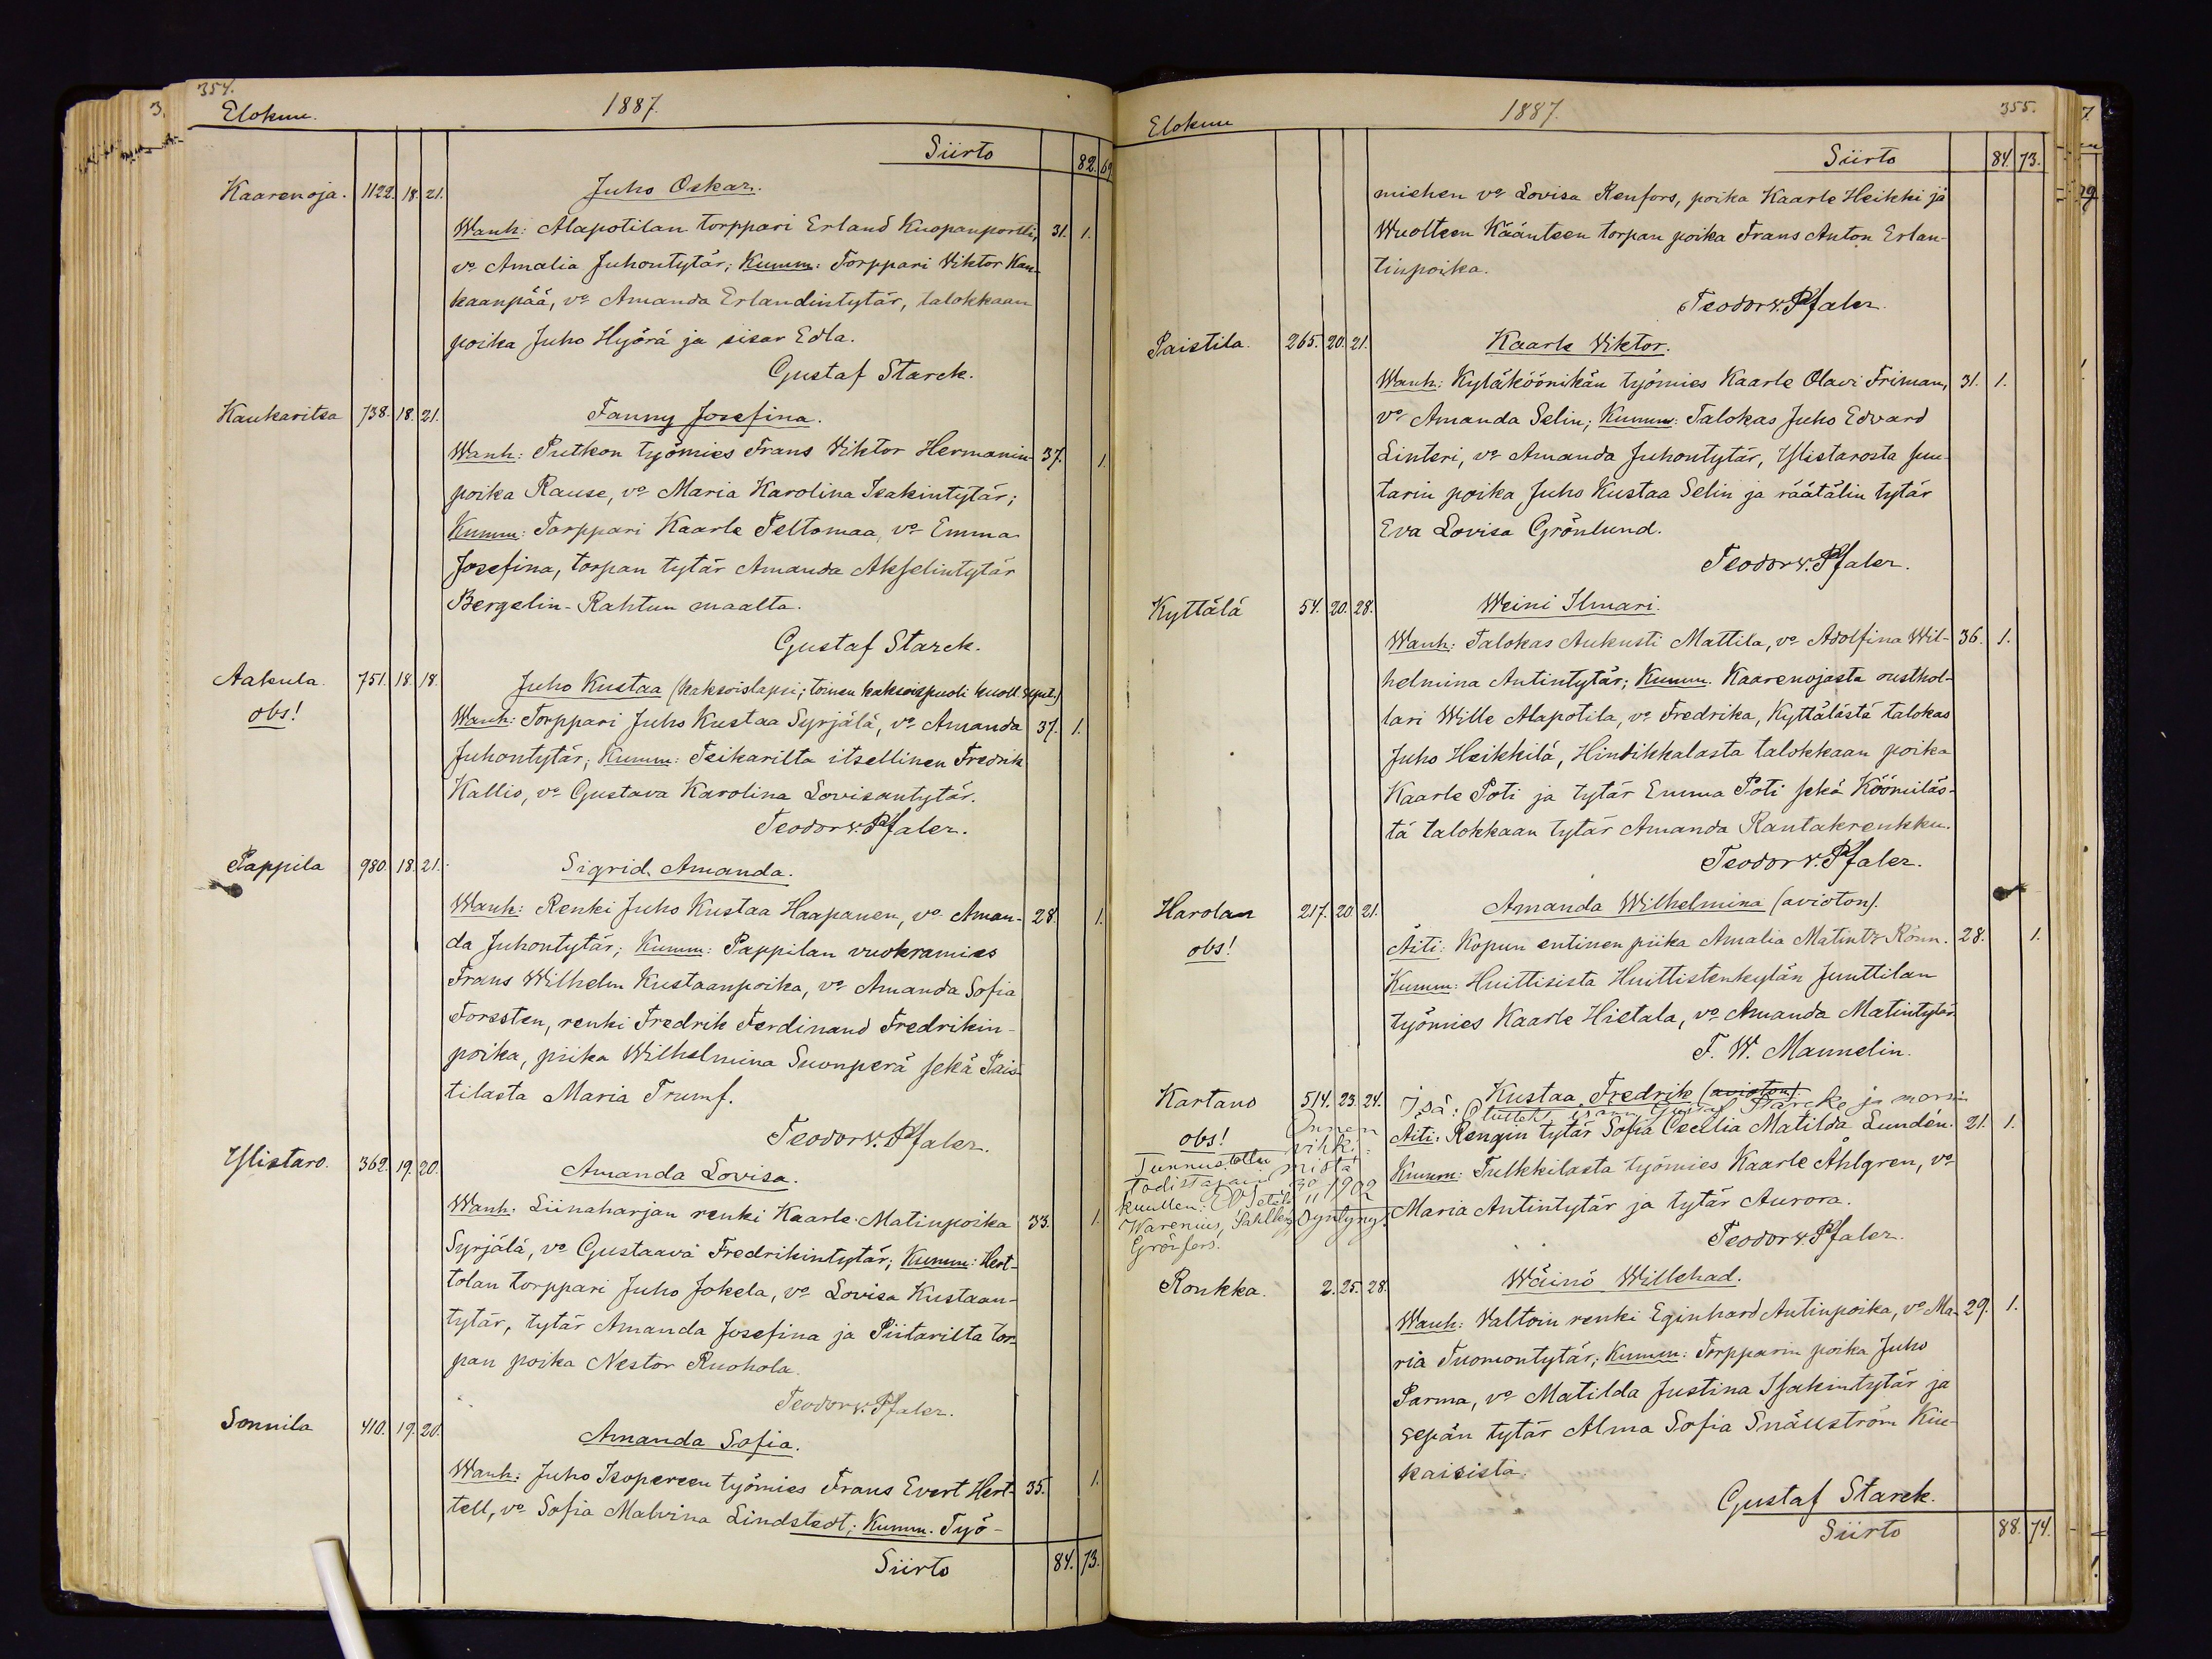 354.
Elokuu.
1887.
Siirto 82. 69
Kaarenoja. 1122. 18. 21. Juho Oskar.
Wanh: Alapotilan torppari Erland Kuopanportti, 31. 1.
vo Amalia Juhontytär; Kumm: Torppari Viktor Kan-
kaanpää, vo Amanda Erlandintytär, talokkaan
poika Juho Hyörä ja sisar Edla.
Gustaf Starck.
Kaukaritsa 738. 18. 21. Fanny Josefina.
Wanh: Putkon työmies Frans Viktor Hermanin- 37. 1.
poika Rause, vo Maria Karolina Isakintytär;
Kumm: Torppari Kaarle Peltomaa, vo Emma
Josefina, torpan tytär Amanda Akselintytär
Bergelin-Rahtun maalta.
Gustaf Starck.
Aakula. 751. 18. 18. Juho Kustaa (kaksoislapsi; toinen kaksoispuoli kuoll. synt.)
obs!
Wanh: Torppari Juho Kustaa Syrjälä, vo Amanda 37. 1.
Juhontytär; Kumm: Teikarilta itsellinen Fredrik
Kallio, vo Gustava Karolina Lovisantytär.
Teodor v. Pfaler.
Pappila 980. 18. 21. Sigrid Amanda.
Wanh: Renki Juho Kustaa Haapanen, vo Aman- 28. 1.
da Juhontytär; Kumm: Pappilan vuokramies
Frans Wilhelm Kustaanpoika, vo Amanda Sofia
Forssten, renki Fredrik Ferdinand Fredrikin-
poika, piika Wilhelmina Suonperä sekä Pais-
tilasta Maria Trumf.
Teodor v. Pfaler.
Ylistaro. 362. 19. 20. Amanda Lovisa.
Wanh. Liinaharjan renki Kaarle Matinpoika 33. 1.
Syrjälä, vo Gustaava Fredrikintytär; Kumm: Hert-
tolan torppari Juho Jokela, vo Lovisa Kustaan-
tytär, tytär Amanda Josefina ja Piitarilta tor-
pan poika Nestor Ruohola.
Teodor v. Pfaler.
Sonnila 410. 19. 20. Amanda Sofia.
Wanh: Juho Isopereen työmies Frans Evert Hert- 35. 1.
tell, vo Sofia Malvina Lindstedt; Kumm. Työ-
Siirto 84. 73.
355.
Elokuu
1887.
Siirto 84. 73.
miehen vo Lovisa Renfors, poika Kaarle Heikki ja
Wuolteen Käänteen torpan poika Frans Anton Erlan-
tinpoika.
Teodor v. Pfaler.
Paistila. 265. 20. 21. Kaarle Viktor.
Wanh: Kyläköönikän työmies Kaarle Olavi Friman, 31. 1.
vo Amanda Selin; Kumm: Talokas Juho Edvard
Linteri, vo Amanda Juhontytär, Ylistarosta suu-
tarin poika Juho Kustaa Selin ja räätälin tytär
Eva Lovisa Grönlund.
Teodor v. Pfaler.
Kyttälä 54. 20. 28. Weini Ilmari.
Wanh: Talokas Aukusti Mattila, vo Adolfina Wil- 36. 1.
helmina Antintytär; Kumm. Kaarenojasta rusthol-
lari Wille Alapotila, vo Fredrika, Kyttälästä talokas
Juho Heikkilä, Hindikkalasta talokkaan poika
Kaarle Poti ja tytär Emma Poti sekä Köömiläs-
tä talokkaan tytär Amanda Rantakrenkku.
Teodor v. Pfaler.
Harolan 217. 20 21. Amanda Wilhelmina (avioton).
obs!
Äiti: Kopun entinen piika Amalia Matint:r Rönn. 28. 1.
Kumm: Huittisista Huittistenkylän Junttilan
työmies Kaarle Hietala, vo Amanda Matintytär
F. W. Mannelin.
Kartano 514. 23. 24. Kustaa Fredrik (avioton).
Isä: isänn. Gustaf Starcke ja morsian
obs! Äiti: Rengin tytär Sofia Cecilia Matilda Lundén. 21. 1.
Ennen
vihki-
Tunnustettu mistä
todistajain
kuullen: 30/11 1902
Warenius, Sahlberg syntynyt.
Grönfors.
Kumm: Tulkkilasta työmies Kaarle Åhlgren, vo
Maria Antintytär ja tytär Aurora.
Teodor v. Pfaler.
Ronkka. 2. 25. 28. Wäinö Willehad.
Wanh: Valtoin renki Eginhard Antinpoika, vo Ma- 29. 1.
ria Tuomontytär; Kumm: Torpparin poika Juho
Parma, vo Matilda Justina Isakintytär ja
sepän tytär Alma Sofia Snällström Kiu-
kaisista.
Gustaf Starck.
Siirto 88. 74.